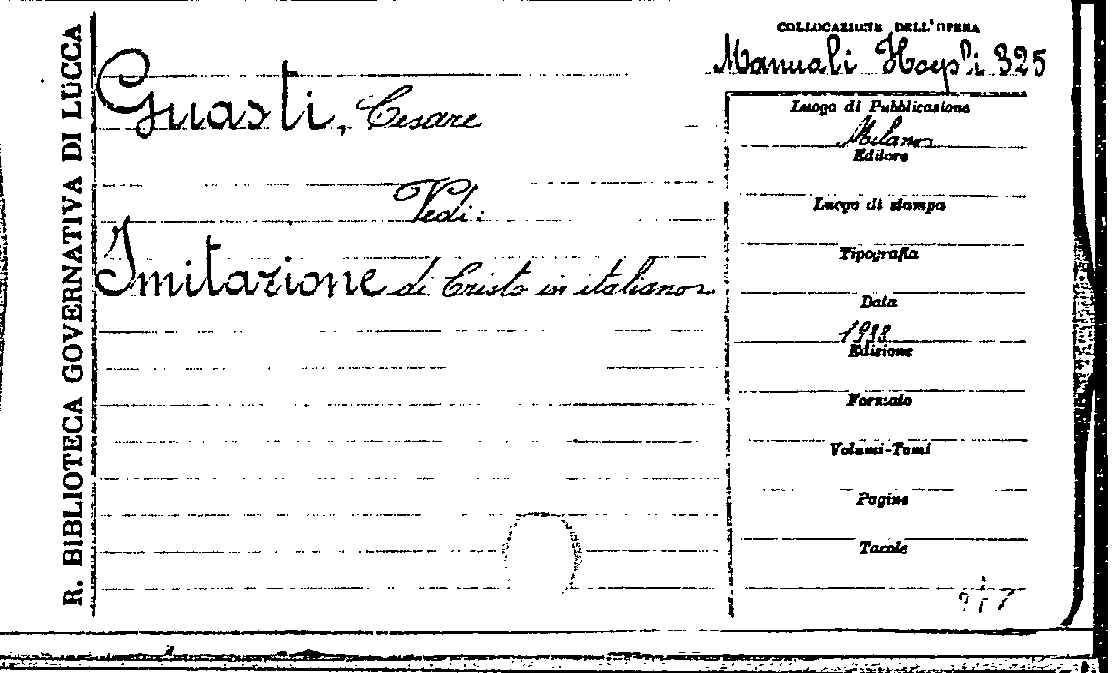 R. BIBLIOTECA GOVERNATIVA DI LUCCA
Guasti, Cesare
Vedi:
Imitazione di Cristo in italiano
COLLOCAZIONE DELL'OPERA
Manuali Hoepli 325
Luogo di Pubblicazione
Milano
Editore
Luogo di stampa
Tipografia
Data
Edizione
Formato
Volumi-Tomi
Pagine
Tavole